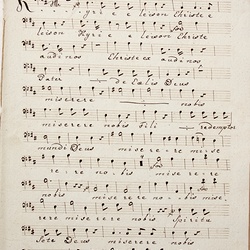 Kyrie eleison Christe
leison Kyrie eleison Christe
audi nos Christe ex audi nos
Pater de Celis Deus
miserere nobis
miserere nobis Fili redemptor
mundi Deus miserere mise
rere nobis miserere
nobis miserere nobis mise
rere miserere nobis Spiritus
Scte Deus miserere nobis